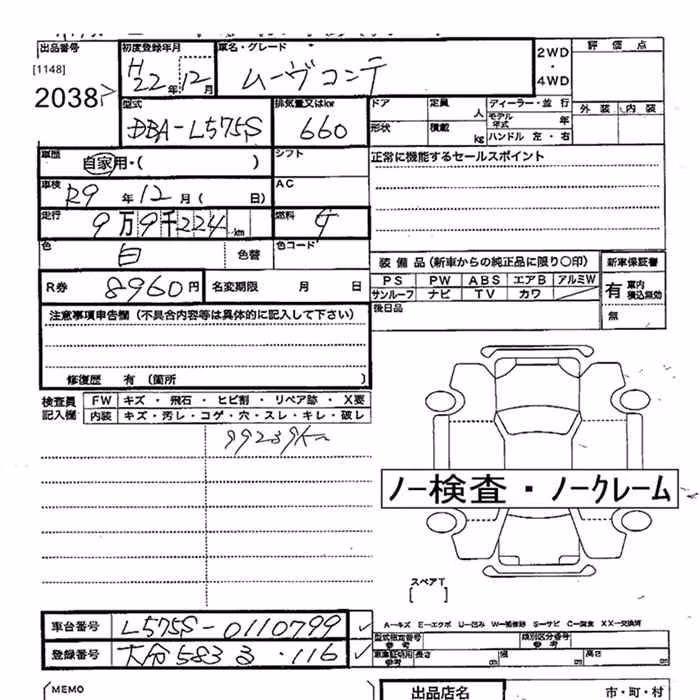 出品番号 初度登録年月 車名・グレード 評価点
[1148] H22年12月 ムーヴコンテ 2WD・4WD
2038
型式 排気量又はkw ドア 定員 人 ディーラー・並行 外装 内装
DBA-L575S 660 モデル年式 年
形状 積載 kg ハンドル 左・右
車歴 自家用・( ) シフト 正常に機能するセールスポイント
車検 R9年12月( 日) AC
走行 9万9千224km 燃料 ガ
色 白 色替 色コード
装備品(新車からの純正品に限り○印) 新車保証書
R券 8960円 名変期限 月 日 PS PW ABS エアB アルミW 有 車内 積込無効
サンルーフ ナビ TV カワ
注意事項申告欄(不具合内容等は具体的に記入して下さい) 後日品 無
修復歴 有(箇所 )
検査員記入欄 FW キズ・飛石・ヒビ割・リペア跡・X要
内装 キズ・汚レ・コゲ・穴・スレ・キレ・破レ
99239Km
ノー検査・ノークレーム
スペアT
[ ]
A-キズ E-エクボ U-凹み W-補修跡 S-サビ C-腐食 XX-交換済
車台番号 L575S-0110799 ✓ 型式指定番号 参考 類別区分番号 参考
登録番号 大分 583 る ・116 ✓ 車庫証明用 参考 長さ cm 幅 cm 高さ cm
MEMO 出品店名 市・町・村